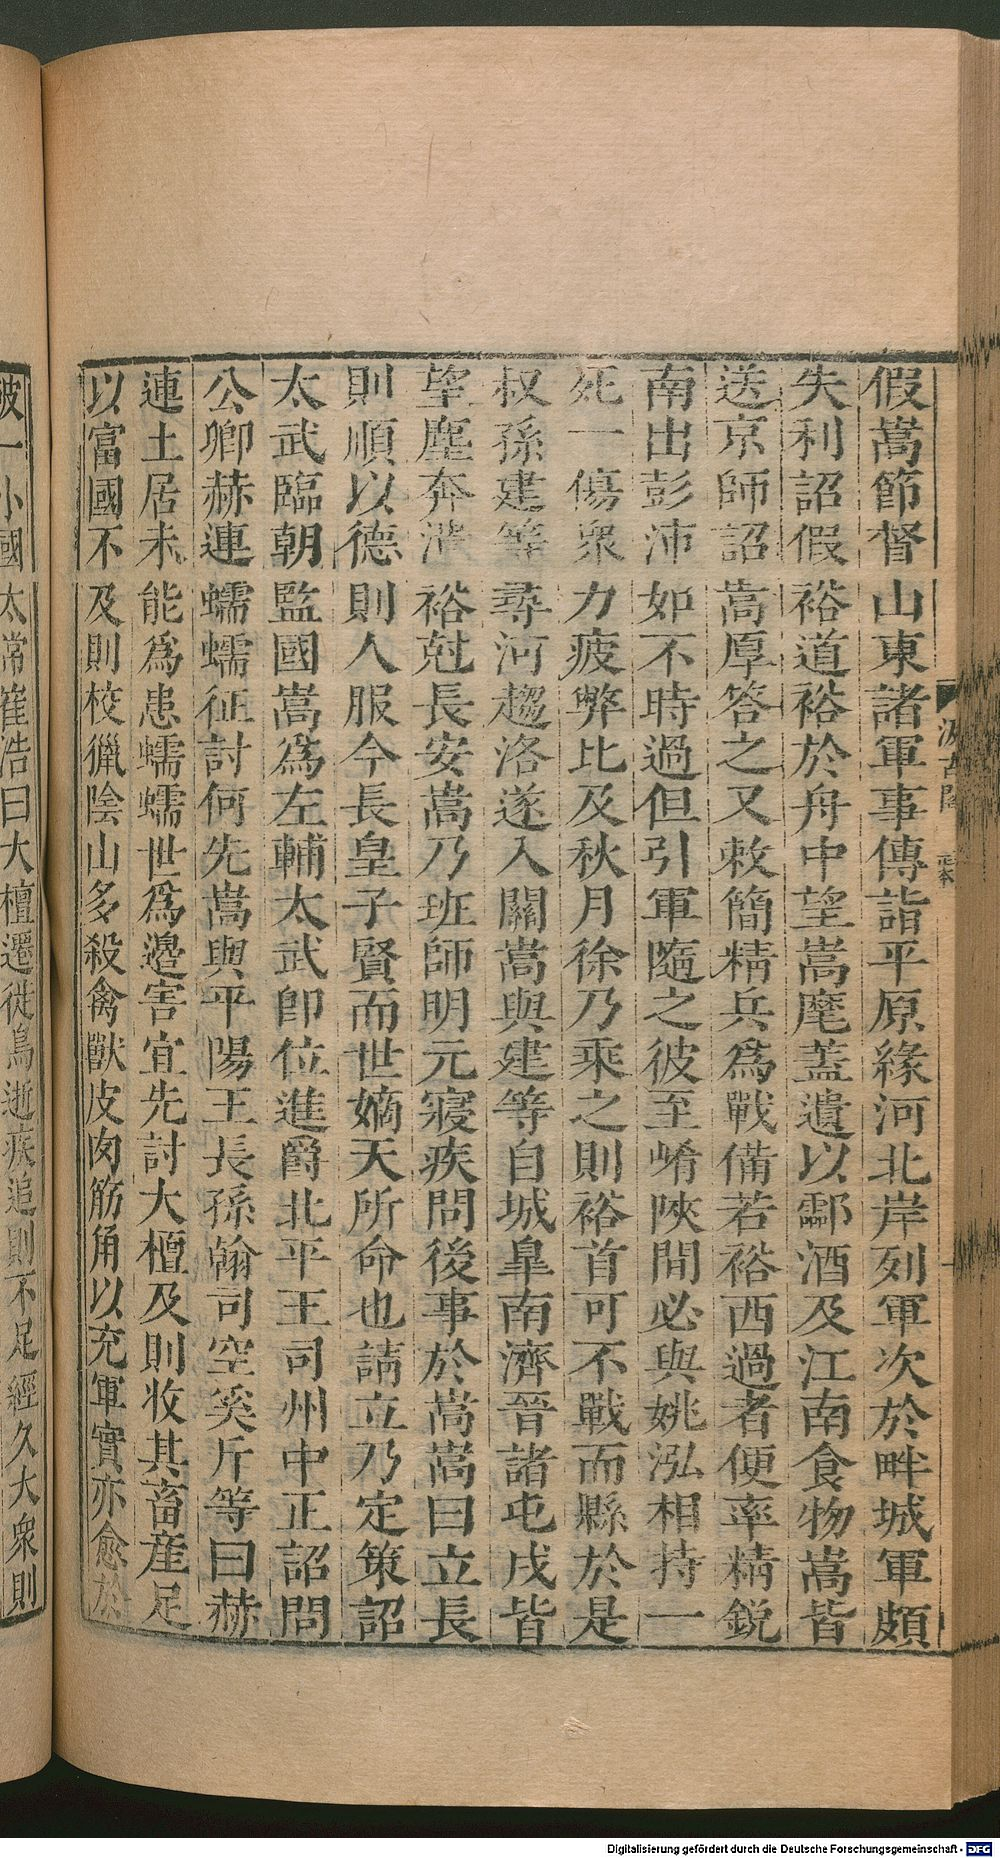 假嵩節督山東諸軍事傳詣平原緣河北岸列軍次於畔城軍頗
失利詔假裕道裕於舟中望嵩麾蓋遺以酃酒及江南食物嵩皆
送京師詔嵩厚答之又敕簡精兵爲戰備若裕西過者便率精銳
南出彭沛如不時過但引軍隨之彼至崤陜間必與姚泓相持一
死一傷衆力疲弊比及秋月徐乃乘之則裕首可不戰而縣於是
叔孫建等尋河趨洛遂入關嵩與建等自城臯南濟晉諸屯戍皆
望塵奔潰裕尅長安嵩乃班師明元寢疾問後事於嵩嵩曰立長
則順以德則人服今長皇子賢而世嫡天所命也請立乃定策詔
太武臨朝監國嵩爲左輔太武卽位進爵北平王司州中正詔問
公卿赫連蠕蠕征討何先嵩與平陽王長孫翰司空奚斤等曰赫
連土居未能爲患蠕蠕世爲邊害宜先討大檀及則收其畜産足
以富國不及則校獵陰山多殺禽獸皮肉筋角以充軍實亦愈於
破一小國太常崔浩曰大檀遷徙鳥逝疾追則不足經久大衆則
汲古閣
Digitalisierung gefördert durch die Deutsche Forschungsgemeinschaft - DFG